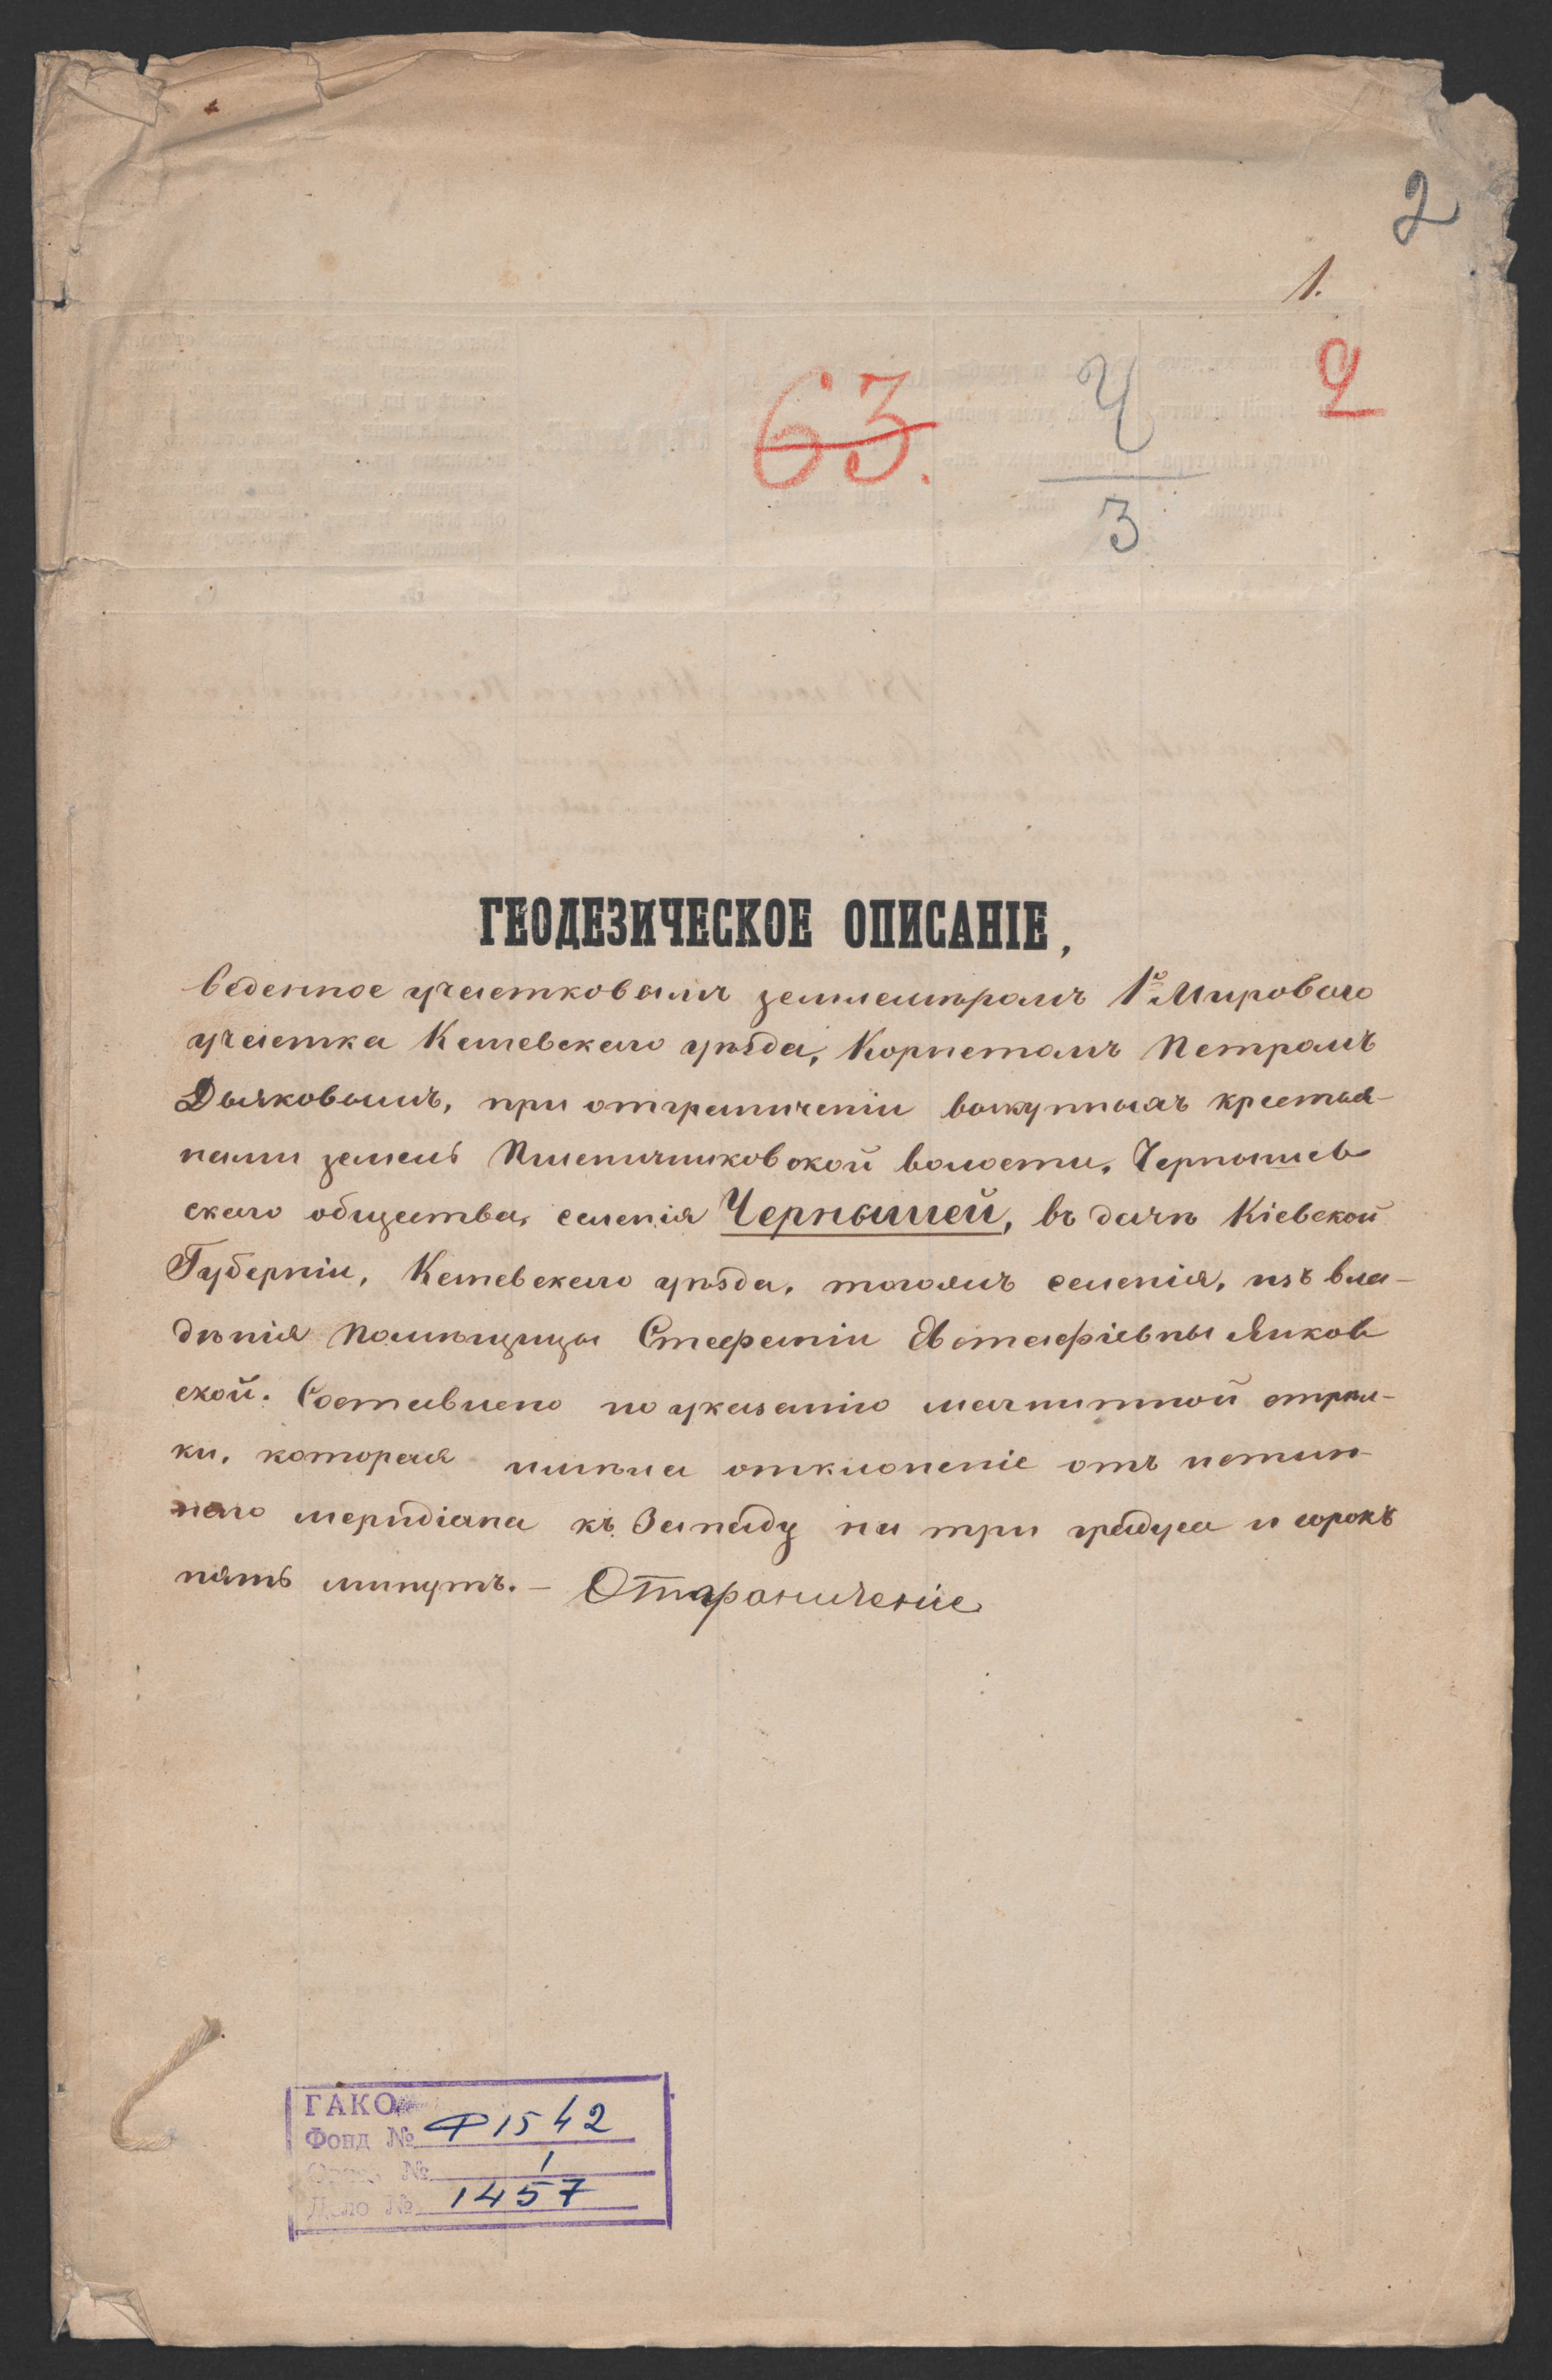 2
1.
2
63.
Ч
3
ГЕОДЕЗИЧЕСКОЕ ОПИСАНІЕ,
веденное участковымъ землемѣромъ 1го Мироваго
участка Каневскаго уѣзда, Корнетомъ Петромъ
Дьяковымъ, при отграниченіи выкупныхъ крестья-
нами земель Пшеничниковской волости, Чернышев
скаго общества, селенія Чернышей, въ дачѣ Кіевской
Губерніи, Каневскаго уѣзда, тогожъ селенія, изъ вла-
дѣнія помѣщицы Стефаніи Евстафіевны Янков
ской. Составлено по указанію магнитной стрѣл-
ки, которая имѣла отклоненіе отъ истин-
наго меридіана къ Западу на три градуса и сорокъ
пять минутъ. – Отграниченіе
ГАКО
Фонд № Ф1542
Опись № 1
Дело № 1457